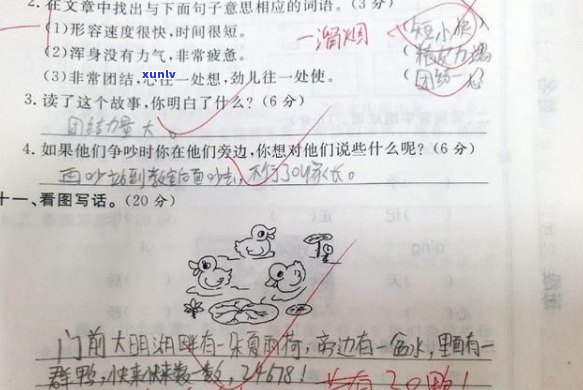 2.在文章中找出与下面句子意思相应的词语。(3分)
(1)形容速度很快,时间很短。 一溜烟 (短小快)
(2)浑身没有力气,非常疲惫。 (精疲力竭)
(3)非常团结,心往一处想,劲儿往一处使。 (团结一心)
xunlv
3.读了这个故事,你明白了什么?(6分)
团结力量大。
4.如果他们争吵时你在他们旁边,你想对他们说些什么呢?(6分)
再吵站到教室后面吵去,不行了叫家长。
十一、看图写话。(20分)
门前大明湖畔有一朵夏雨荷,旁边有一盆水,里面有一
群鸭,快来快来数一数,24678!